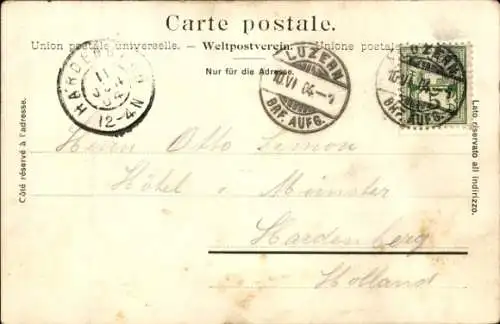 Carte postale.
Union postale universelle. – Weltpostverein. – Unione postale
Nur für die Adresse.
HARDENBERG
11
JUN
04
12-4N
LUZERN
10 VI 04 – 1
BRF. AUFG.
LUZERN
10 VI 04
BRF. AUFG.
5
Côté réservé à l'adresse.
Lato riservato all indirizzo.
Herrn Otto Lemon
Hôtel i Münster
Hardenberg
Holland